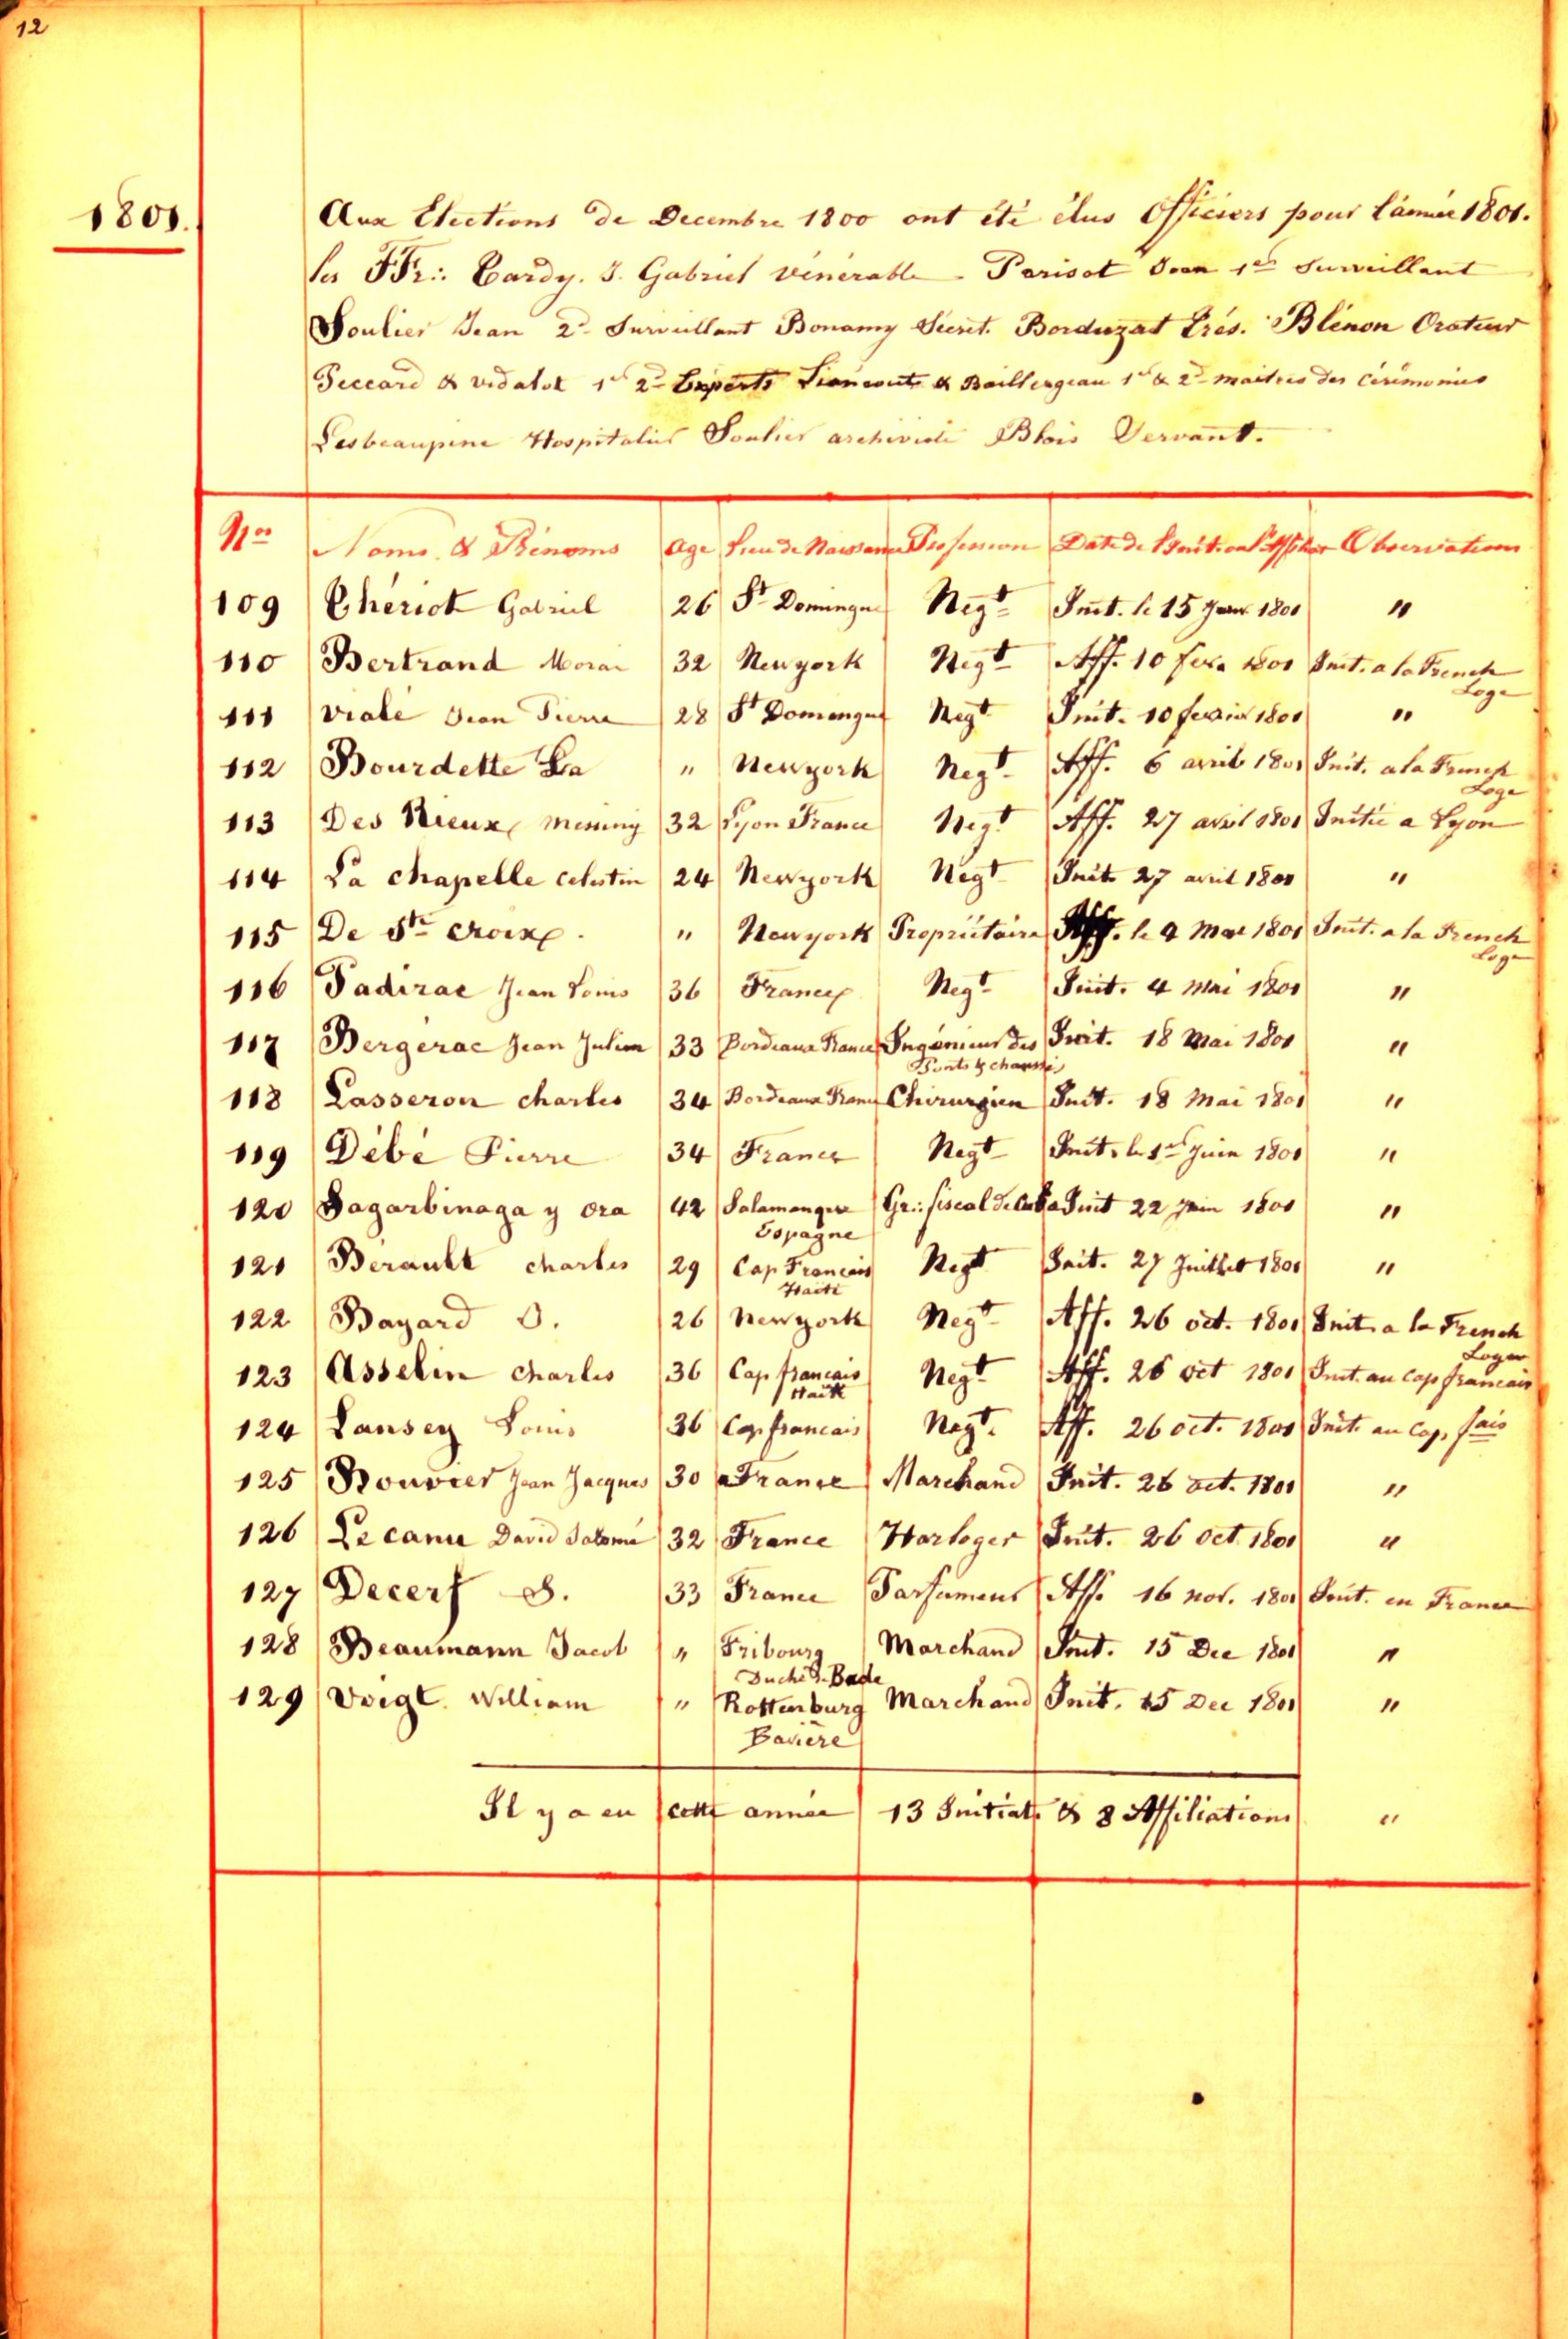 12
1801.
Aux Elections de Decembre 1800 ont été élus Officiers pour l'année 1801.
les FFr∴ Cardy. J. Gabriel Vénérable - Parisot Jean 1er Surveillant
Soulier Jean 2d Surveillant Bonamy Secret. Borduzat Trés. Blénon Orateur
Peccard & Vidalot 1er 2d Experts & Baillergeau 1er & 2d maitres des cérémonies
Lesbeaupine Hospitalier Soulier archiviste Blois Servant.
Nos Noms & Prénoms Age Lieu de Naissance Profession Date de l'Init. ou l'Affiliat Observations
109 Chériot Gabriel 26 St Domingue Negt Init. le 15 Janv 1801 "
110 Bertrand 32 Newyork Negt Aff. 10 fevr 1801 Init. a la French Loge
111 Vialé Jean Pierre 28 St Domingue Negt Init. 10 fevrier 1801 "
112 Bourdette La " Newyork Negt Aff. 6 avril 1801 Init. a la French Loge
113 Des Rieux Meming 32 Lyon France Negt Aff. 27 avril 1801 Initié a Lyon
114 La chapelle Celestin 24 Newyork Negt Init 27 avril 1801 "
115 De Ste Croix. " Newyork Propriétaire Aff. le 4 Mai 1801 Init. a la French Loge
116 Padirac Jean Louis 36 France Negt Init. 4 Mai 1801 "
117 Bergerac Jean Julien 33 Bordeaux France Ingénieur des Ponts & chaussés Init. 18 Mai 1801 "
118 Lasseron Charles 34 Bordeaux France Chirurgien Init. 18 Mai 1801 "
119 Débé Pierre 34 France Negt Init. le 1er Juin 1801 "
120 Sagarbinaga y Ora 42 Salamanque Espagne Gr∴ fiscal de Cuba Init 22 Juin 1801 "
121 Bérault Charles 29 Cap Francais Haiti Negt Init. 27 Juillet 1801 "
122 Bayard O. 26 Newyork Negt Aff. 26 oct. 1801 Init a la French Loge
123 Asselin Charles 36 Cap francais Haiti Negt Aff. 26 oct 1801 Init. au Cap francais
124 Lansey Louis 36 Cap francais Negt. Aff. 26 oct. 1801 Init. au Cap. fais
125 Bouvier Jean Jacques 30 France Marchand Init. 26 oct. 1801 "
126 Le canu David Salomé 32 France Horloger Init. 26 oct 1801 "
127 Decerf S. 33 France Parfumeur Aff. 16 nov. 1801 Init. en France
128 Beaumann Jacob " Fribourg Duché de Bade Marchand Init. 15 Dec 1801 "
129 Voigt William " Rottenburg Baviere Marchand Init. 15 Dec 1801 "
Il y a eu cette année 13 Initiats & 8 Affiliations "